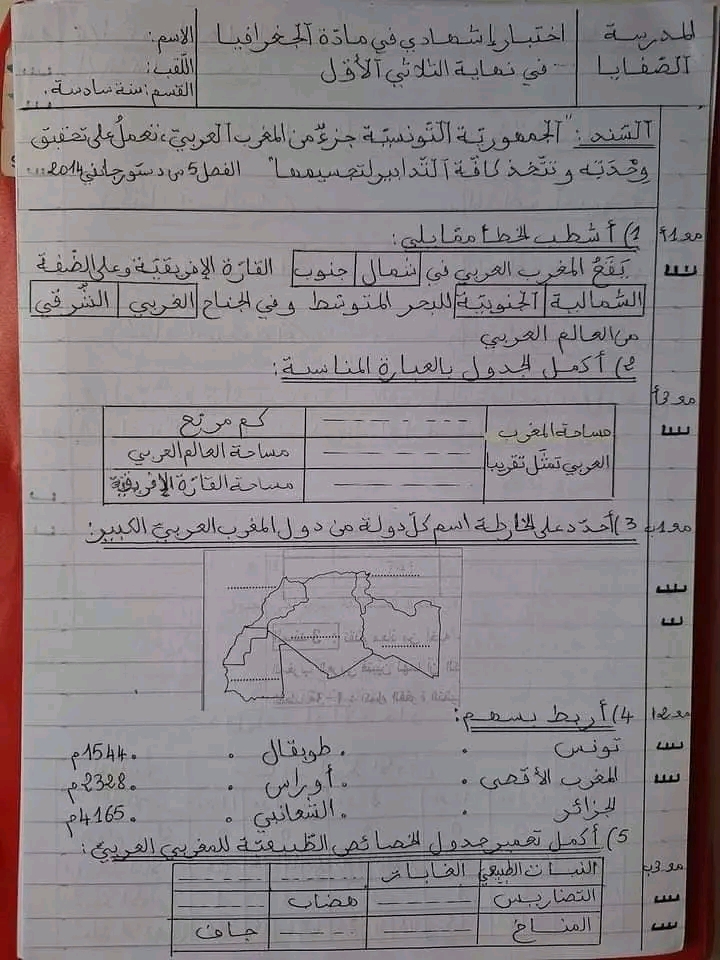 المدرسة
الصّفايا
اختبار إشهادي في مادّة الجغرافيا
في نهاية الثلاثي الأوّل
الاسم:
اللّقب:
القسم: سنة سادسة.
السّند: "الجمهوريّة التّونسيّة جزءٌ من المغرب العربيّ، تعملُ على تحقيق
وِحْدَتِه وتتّخذ كافّة التّدابير لتجسيمها" الفصل 5 من دستور جانفي 2014
مع 1أ
1) أشطب الخطأ مقابلي:
يَقَعُ المغرب العربي في شمال جنوب القارّة الإفريقيّة وعلى الضّفة
الشّمالية الجنوبيّة للبحر المتوسّط وفي الجناح الغربي الشّرقي
من العالم العربي
2) أكمل الجدول بالعبارة المناسبة:
مع 3أ
مساحة المغرب
العربي تمثّل تقريبا
كم مربّع
مساحة العالم العربي
مساحة القارّة الإفريقيّة
مع 1ب
3) أحدّد على الخارطة اسم كلّ دولة من دول المغرب العربيّ الكبير:
مع 2أ
4) أربط بسهم:
تونس . . طوبقال . . 1544م
المغرب الأقصى . . أوراس . . 2328م
الجزائر . . الشعانبي . . 4165م
5) أكمل تعمير جدول الخصائص الطّبيعيّة للمغرب العربيّ:
مع 3ب
النبات الطبيعي الغابات
التضاريس هضاب
المناخ جاف